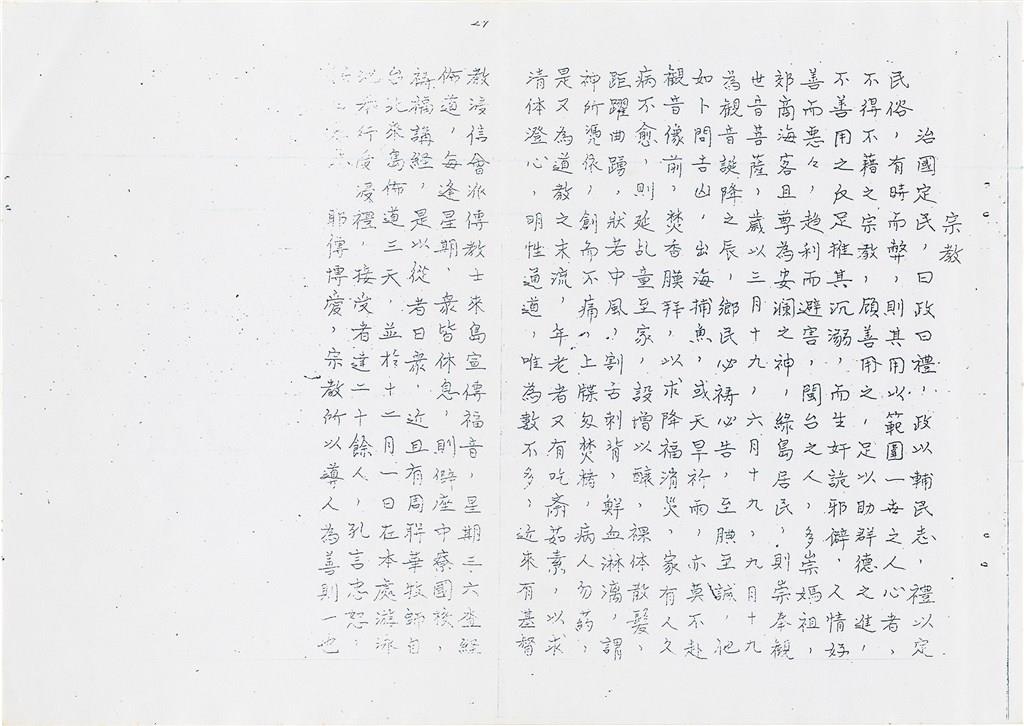 27
宗教
治國定民，曰政曰禮，政以輔民志，禮以定
民俗，有時而弊，則其用以範圍一世之人心者，
不得不藉之宗教，顧善用之，足以助群德之進，
不善用之反足推其沉溺，而生奸詭邪僻，人情好
善而惡々，趨利而避害，閩台之人，多崇媽祖，
郊商海客且尊為安瀾之神，綠島居民，則崇奉觀
世音菩薩，歲以三月十九，六月十九，九月十九
為觀音誕降之辰，鄉民必禱必告，至腆至誠，祀
如卜問吉凶，出海捕魚，或天旱祈雨，亦莫不赴
觀音像前，焚香膜拜，以求降福消災，家有人久
病不愈，則延乩童至家，設增以醸，裸体散髮，
距躍曲踴，狀若中風，割舌刺背，鮮血淋漓，謂
神所憑依，創而不痛，上牒勿焚楮，病人勿药，
是又為道教之末流，年老者又有吃斋茹素，以求
清体澄心，明性通道，唯為數不多，近來有基督
教浸信會派傳教士來島宣傳福音，星期三六查經
佈道，每逢星期，衆皆休息，則僻座中寮國校，
禱福講經，是以從者日衆，近且有周聯華牧師自
台北來島佈道三天，並於十二月一日在本處游泳
池 行受浸禮，接受者達二十餘人，孔言忠恕，
耶傳博愛，宗教所以導人為善則一也